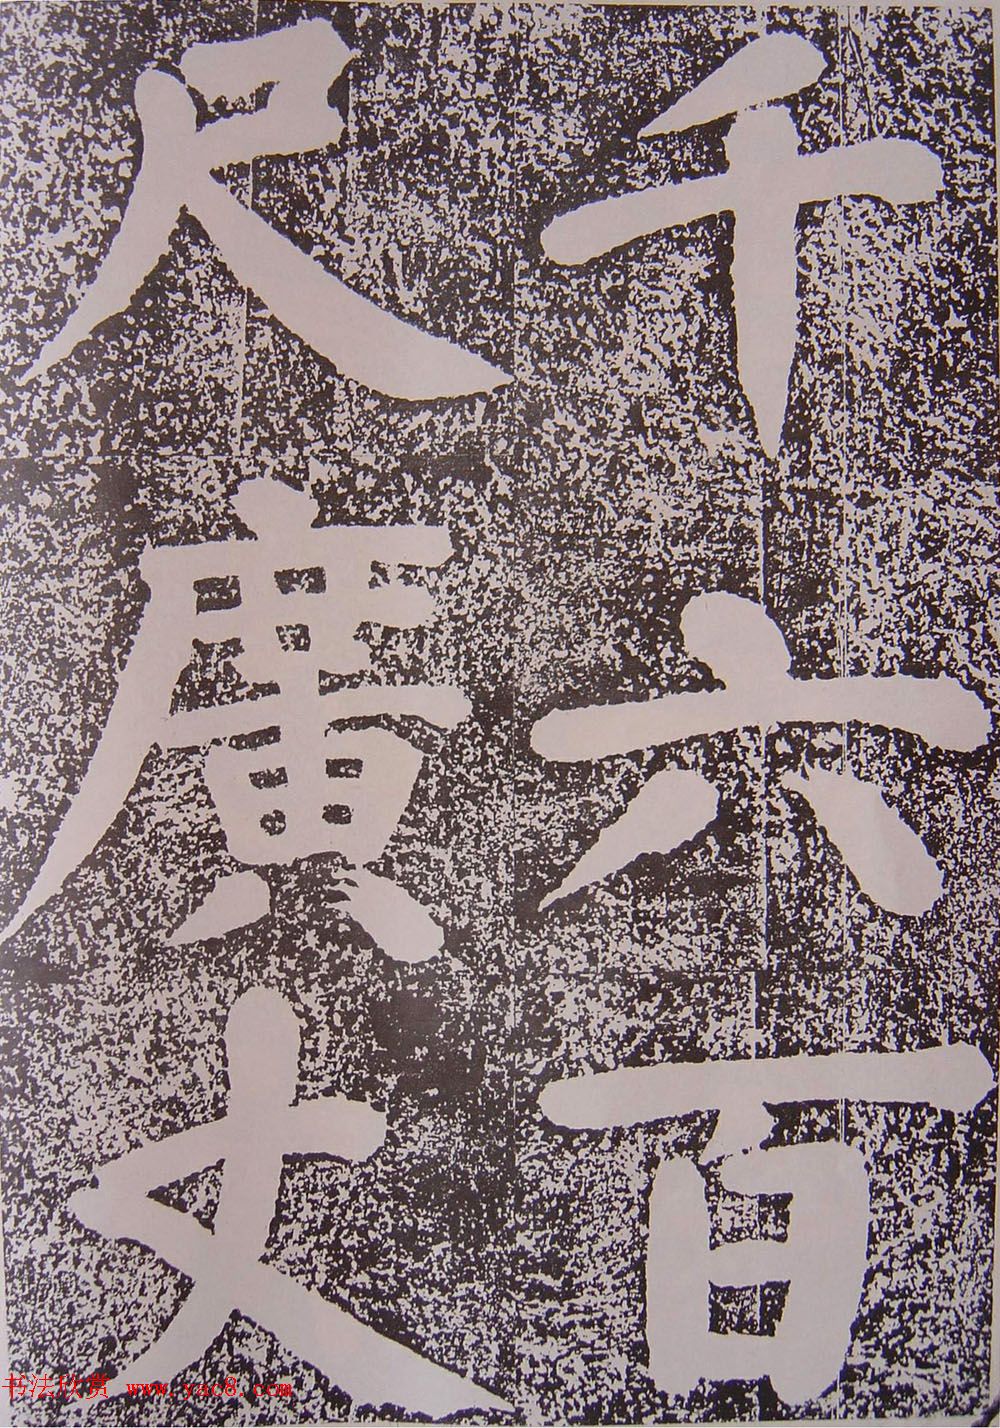 千六百
尺廣丈
书法欣赏 www.yac8.com